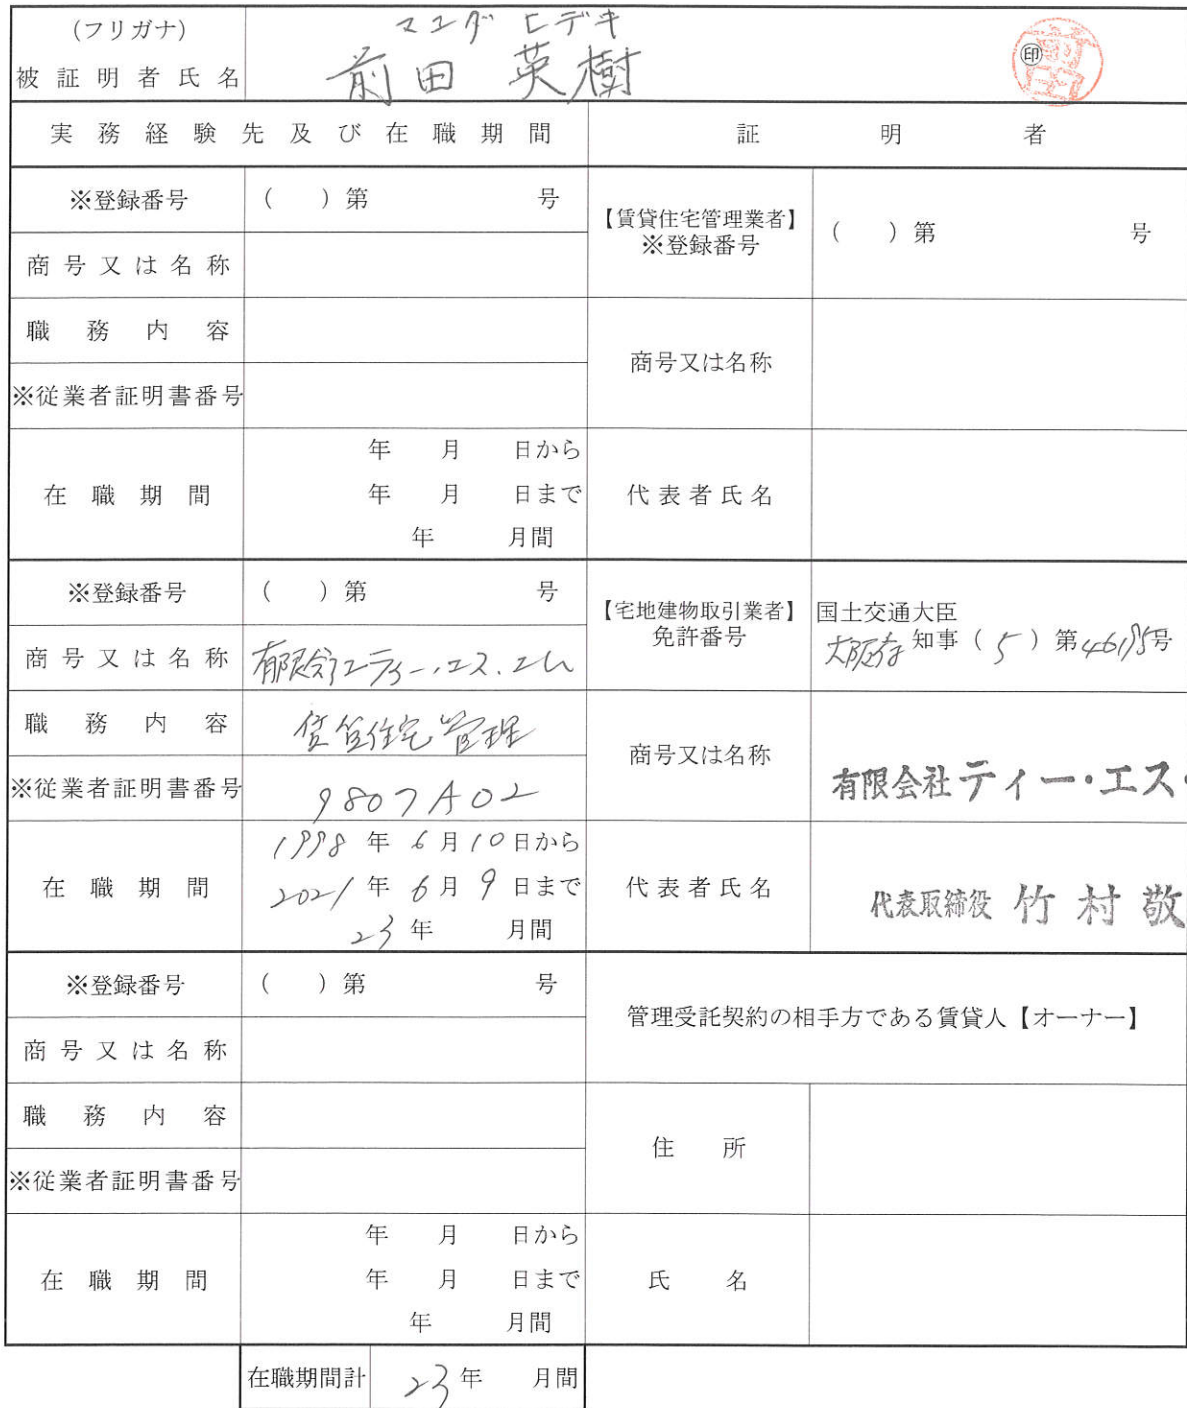 (フリガナ) マエダ ヒデキ
被証明者氏名 前田 英樹 ㊞ 前田
実務経験先及び在職期間 証明者
※登録番号 ( ) 第 号
【賃貸住宅管理業者】
※登録番号 ( ) 第 号
商号又は名称
職務内容
※従業者証明書番号
商号又は名称
在職期間
年 月 日から
年 月 日まで
年 月間
代表者氏名
※登録番号 ( ) 第 号
【宅地建物取引業者】
免許番号
国土交通大臣
大阪府 知事 ( 5 ) 第46195号
商号又は名称 有限会社ティー.エス.エム
職務内容 賃貸住宅管理
※従業者証明書番号 9807A02
商号又は名称 有限会社ティー・エス・
在職期間
1998年6月10日から
2021年6月9日まで
23年 月間
代表者氏名 代表取締役 竹村敬
※登録番号 ( ) 第 号
管理受託契約の相手方である賃貸人【オーナー】
商号又は名称
職務内容
※従業者証明書番号
住所
在職期間
年 月 日から
年 月 日まで
年 月間
氏名
在職期間計 23年 月間